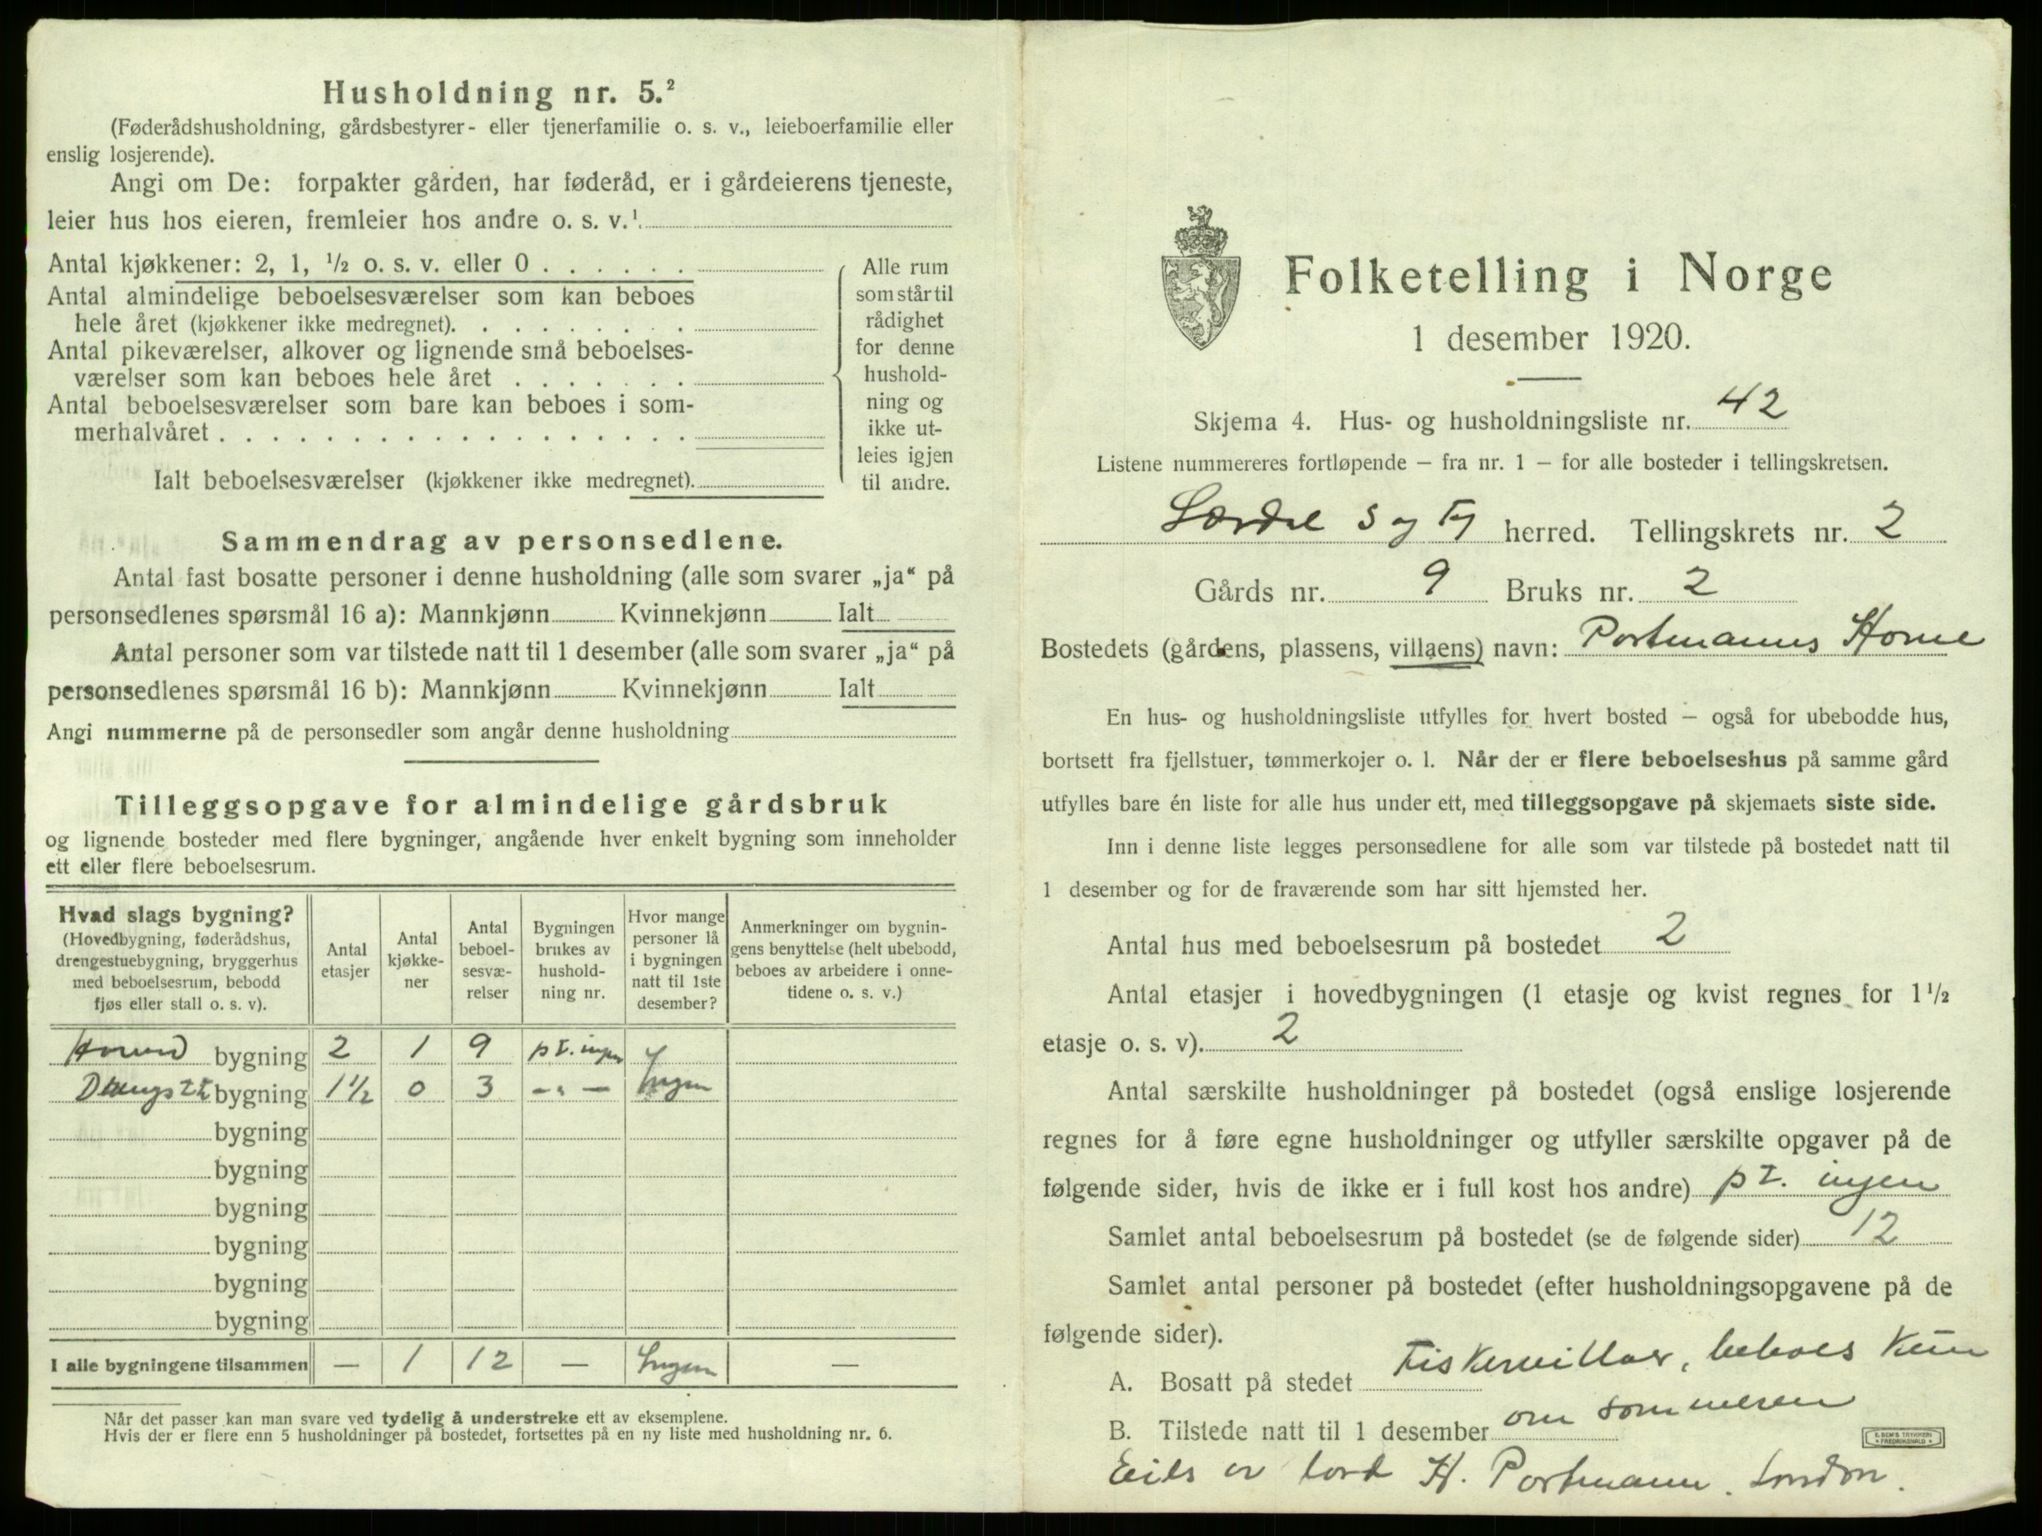 Husholdning nr. 5.²
(Føderådshusholdning, gårdsbestyrer- eller tjenerfamilie o. s. v., leieboerfamilie eller
enslig losjerende).
Angi om De: forpakter gården, har føderåd, er i gårdeierens tjeneste,
leier hus hos eieren, fremleier hos andre o. s. v.¹
Antal kjøkkener: 2, 1, ½ o. s. v. eller 0
Antal almindelige beboelsesværelser som kan beboes
hele året (kjøkkener ikke medregnet).
Antal pikeværelser, alkover og lignende små beboelses-
værelser som kan beboes hele året
Antal beboelsesværelser som bare kan beboes i som-
merhalvåret
Ialt beboelsesværelser (kjøkkener ikke medregnet).
Alle rum
som står til
rådighet
for denne
hushold-
ning og
ikke ut-
leies igjen
til andre.
Sammendrag av personsedlene.
Antal fast bosatte personer i denne husholdning (alle som svarer „ja“ på
personsedlenes spørsmål 16 a): Mannkjønn Kvinnekjønn Ialt
Antal personer som var tilstede natt til 1 desember (alle som svarer „ja“ på
personsedlenes spørsmål 16 b): Mannkjønn Kvinnekjønn Ialt
Angi nummerne på de personsedler som angår denne husholdning
Tilleggsopgave for almindelige gårdsbruk
og lignende bosteder med flere bygninger, angående hver enkelt bygning som inneholder
ett eller flere beboelsesrum.
Hvad slags bygning?
(Hovedbygning, føderådshus,
drengestuebygning, bryggerhus
med beboelsesrum, bebodd
fjøs eller stall o. s. v).
Antal
etasjer
Antal
kjøkke-
ner
Antal
beboel-
sesvæ-
relser
Bygningen
brukes av
hushold-
ning nr.
Hvor mange
personer lå
i bygningen
natt til 1ste
desember?
Anmerkninger om bygnin-
gens benyttelse (helt ubebodd,
beboes av arbeidere i onne-
tidene o. s. v.)
bygning 2 1 9 pt. ingen
bygning 1½ 0 3 -„- Ingen
bygning
bygning
bygning
bygning
bygning
bygning
I alle bygningene tilsammen — 1 12 — Ingen —
Når det passer kan man svare ved tydelig å understreke ett av eksemplene.
Hvis der er flere enn 5 husholdninger på bostedet, fortsettes på en ny liste med husholdning nr. 6.
Folketelling i Norge
1 desember 1920.
Skjema 4. Hus- og husholdningsliste nr. 42
Listene nummereres fortløpende – fra nr. 1 – for alle bosteder i tellingskretsen.
Lærdal S og Fj herred. Tellingskrets nr. 2
Gårds nr. 9 Bruks nr. 2
Bostedets (gårdens, plassens, villaens) navn: Portmanns Home
En hus- og husholdningsliste utfylles for hvert bosted – også for ubebodde hus,
bortsett fra fjellstuer, tømmerkojer o. l. Når der er flere beboelseshus på samme gård
utfylles bare én liste for alle hus under ett, med tilleggsopgave på skjemaets siste side.
Inn i denne liste legges personsedlene for alle som var tilstede på bostedet natt til
1 desember og for de fraværende som har sitt hjemsted her.
Antal hus med beboelsesrum på bostedet 2
Antal etasjer i hovedbygningen (1 etasje og kvist regnes for 1½
etasje o. s. v). 2
Antal særskilte husholdninger på bostedet (også enslige losjerende
regnes for å føre egne husholdninger og utfyller særskilte opgaver på de
følgende sider, hvis de ikke er i full kost hos andre) pt. ingen
Samlet antal beboelsesrum på bostedet (se de følgende sider) 12
Samlet antal personer på bostedet (efter husholdningsopgavene på de
følgende sider).
A. Bosatt på stedet Fiskervillaer, beboes kun
B. Tilstede natt til 1 desember om sommeren
E. SEM'S TRYKKERI
FREDRIKSHALD
Eies av lord H. Portmann. London.